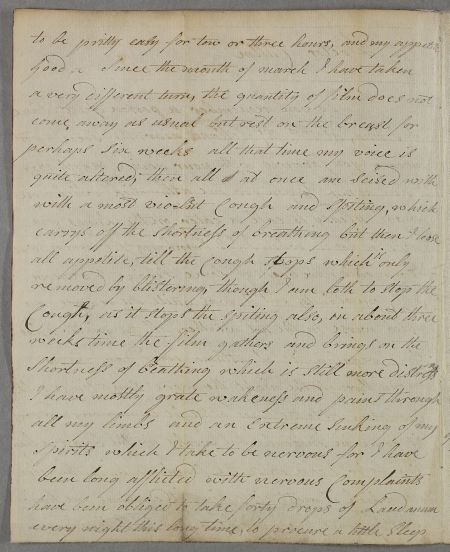 to be pritty easy for tow or three hours, and my appetite
Good. Since the month of march I have taken
a very different turn, the quantity of film does not
come away as usual but rest on the breast for
perhaps six weeks all that time my voice is
quite altered, then all at once am seized with
with a most violent Cough and Spiting, which
carrys off the shortness of breathing but then I lose
all appetite, till the Cough stops which is only
removed by blistering, though I am loth to stop the
Cough, as it stops the spiting also, in about three
weeks time the film gathers and brings on the
Shortness of breathing which is still more distress
I have mostly grate wakeness and pains through
all my limbs and an Extreme Sinking of my
Spirits which I take to be nervous for I have
been long afflicted with nervous Complaints
have been obliged to take forty drops of Laudanum
every night this long time, to procure a little Sleep